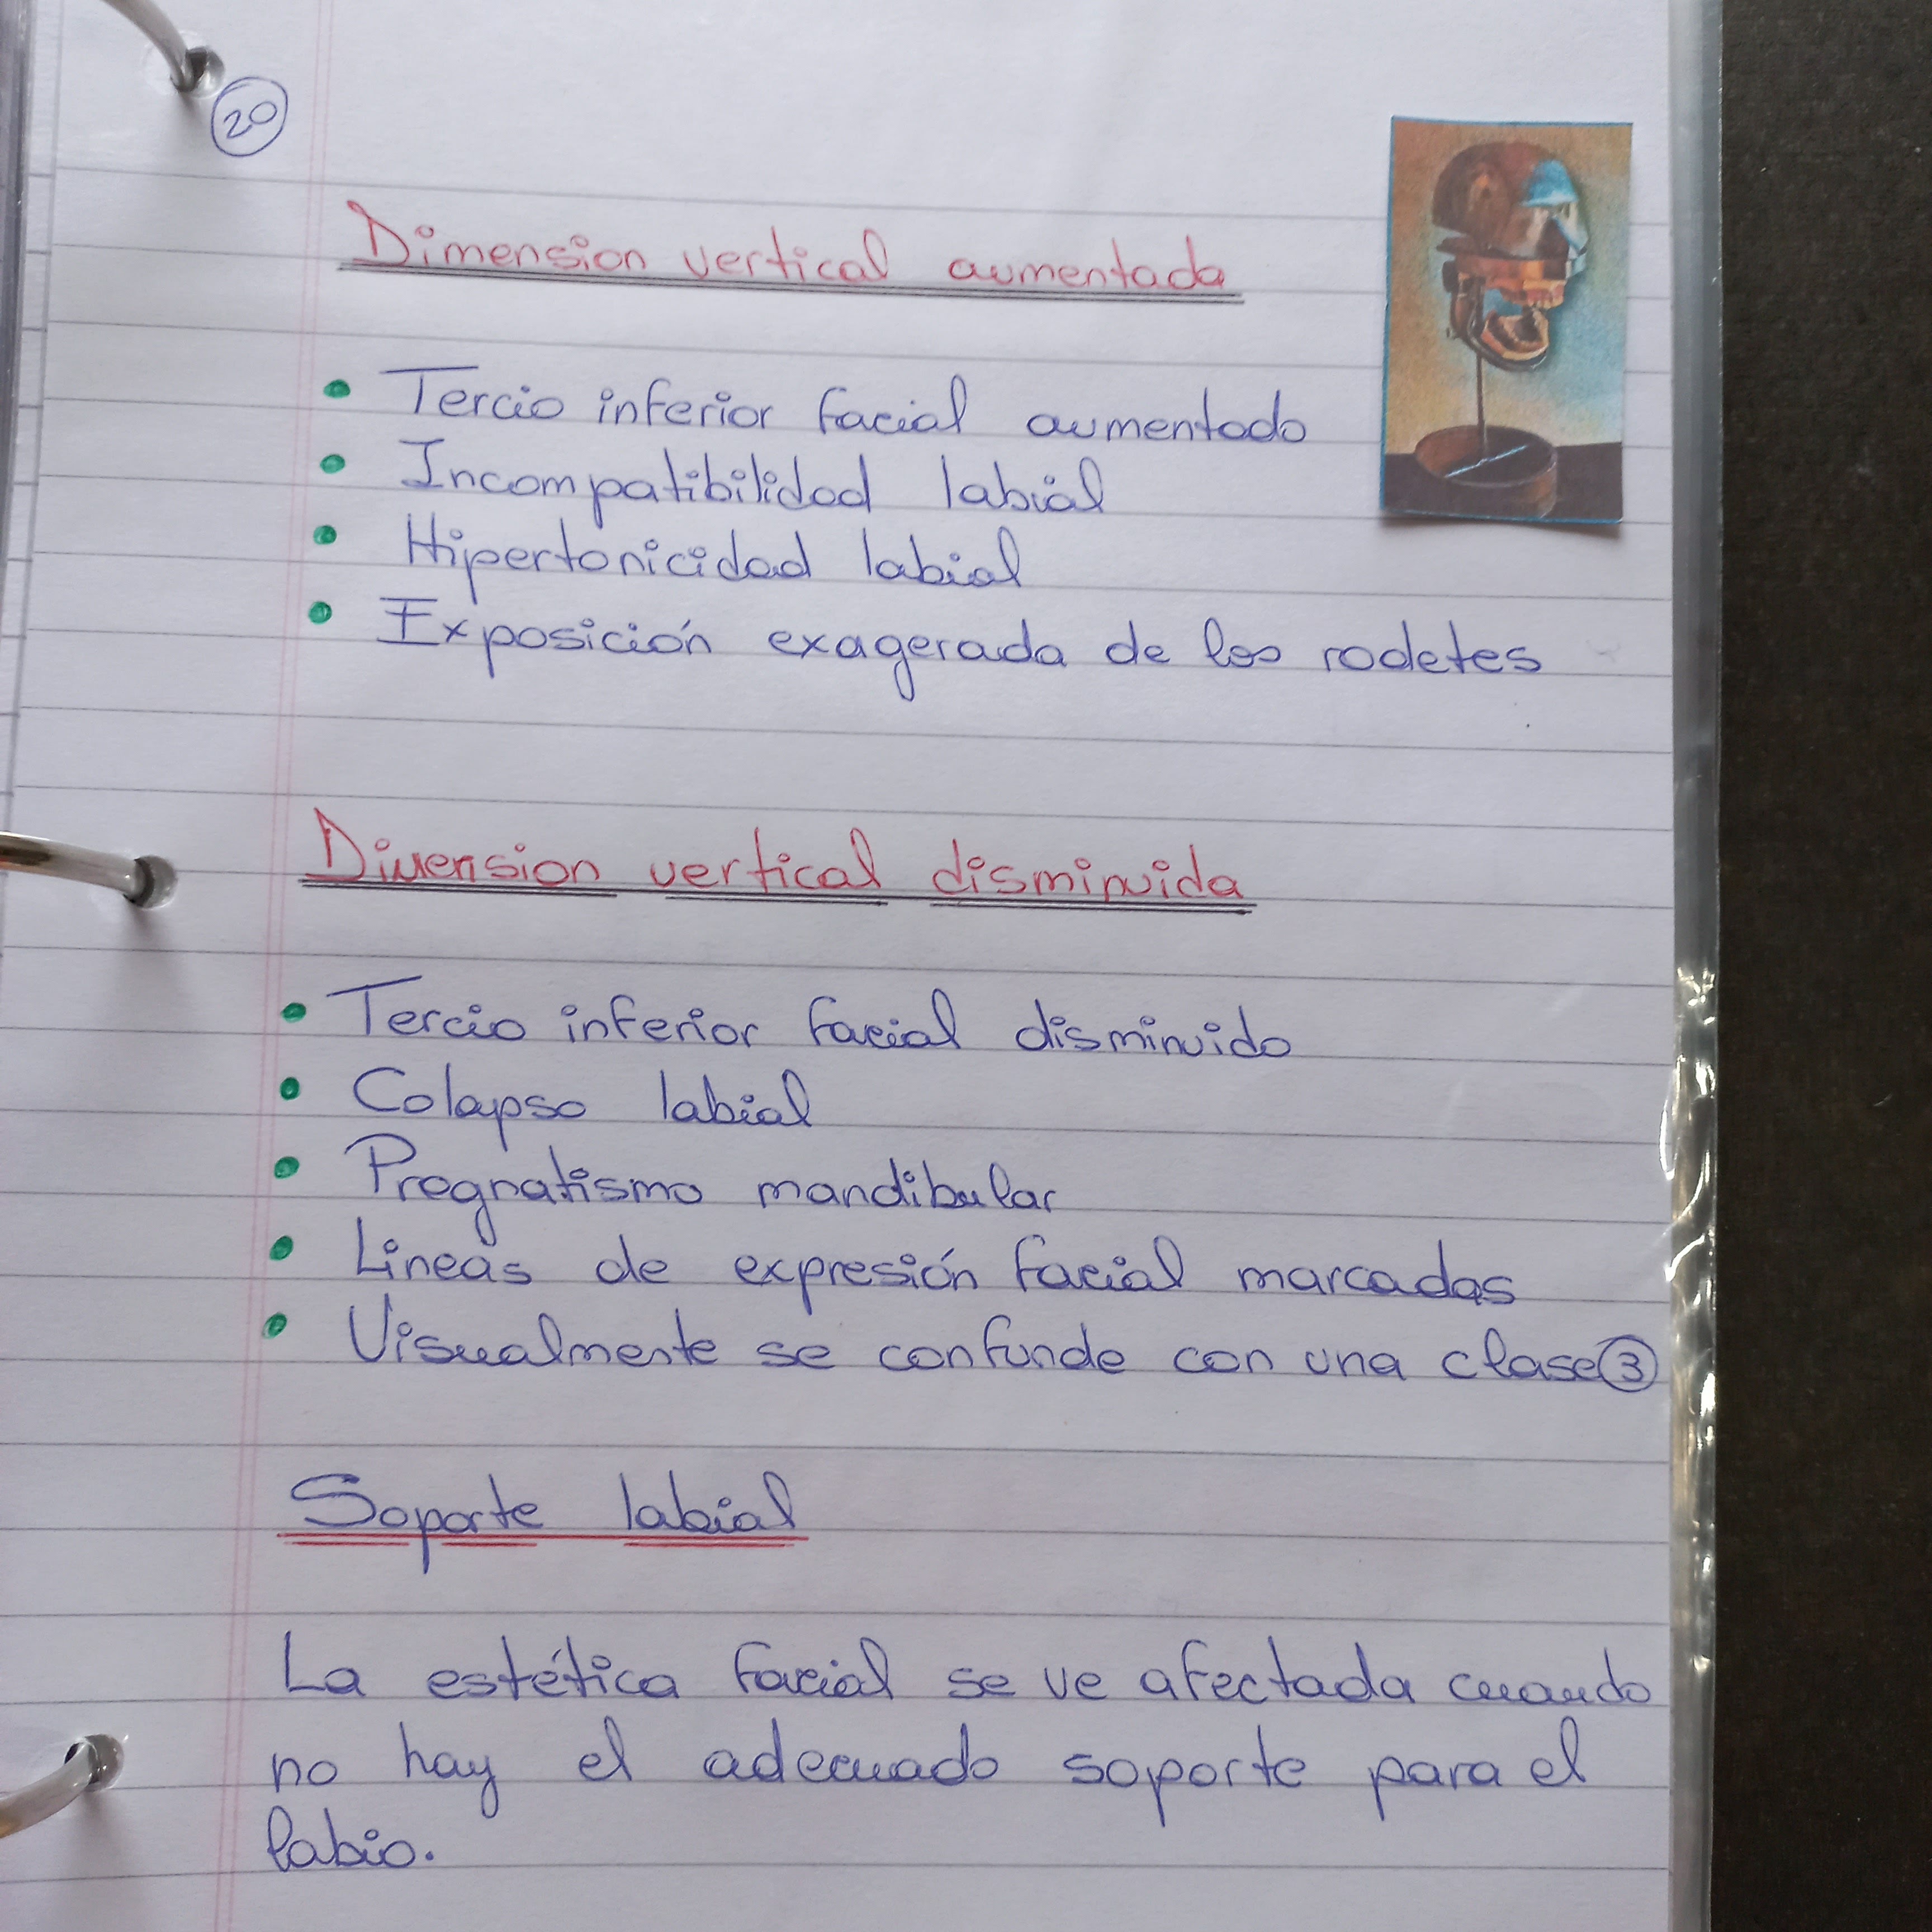 20
Dimension vertical aumentada
• Tercio inferior facial aumentado
• Incompatibilidad labial
• Hipertonicidad labial
• Exposición exagerada de los rodetes
Dimension vertical disminuida
• Tercio inferior facial disminuido
• Colapso labial
• Pregnatismo mandibular
• Lineas de expresión facial marcadas
• Visualmente se confunde con una clase 3
Soporte labial
La estética facial se ve afectada cuando
no hay el adecuado soporte para el
labio.